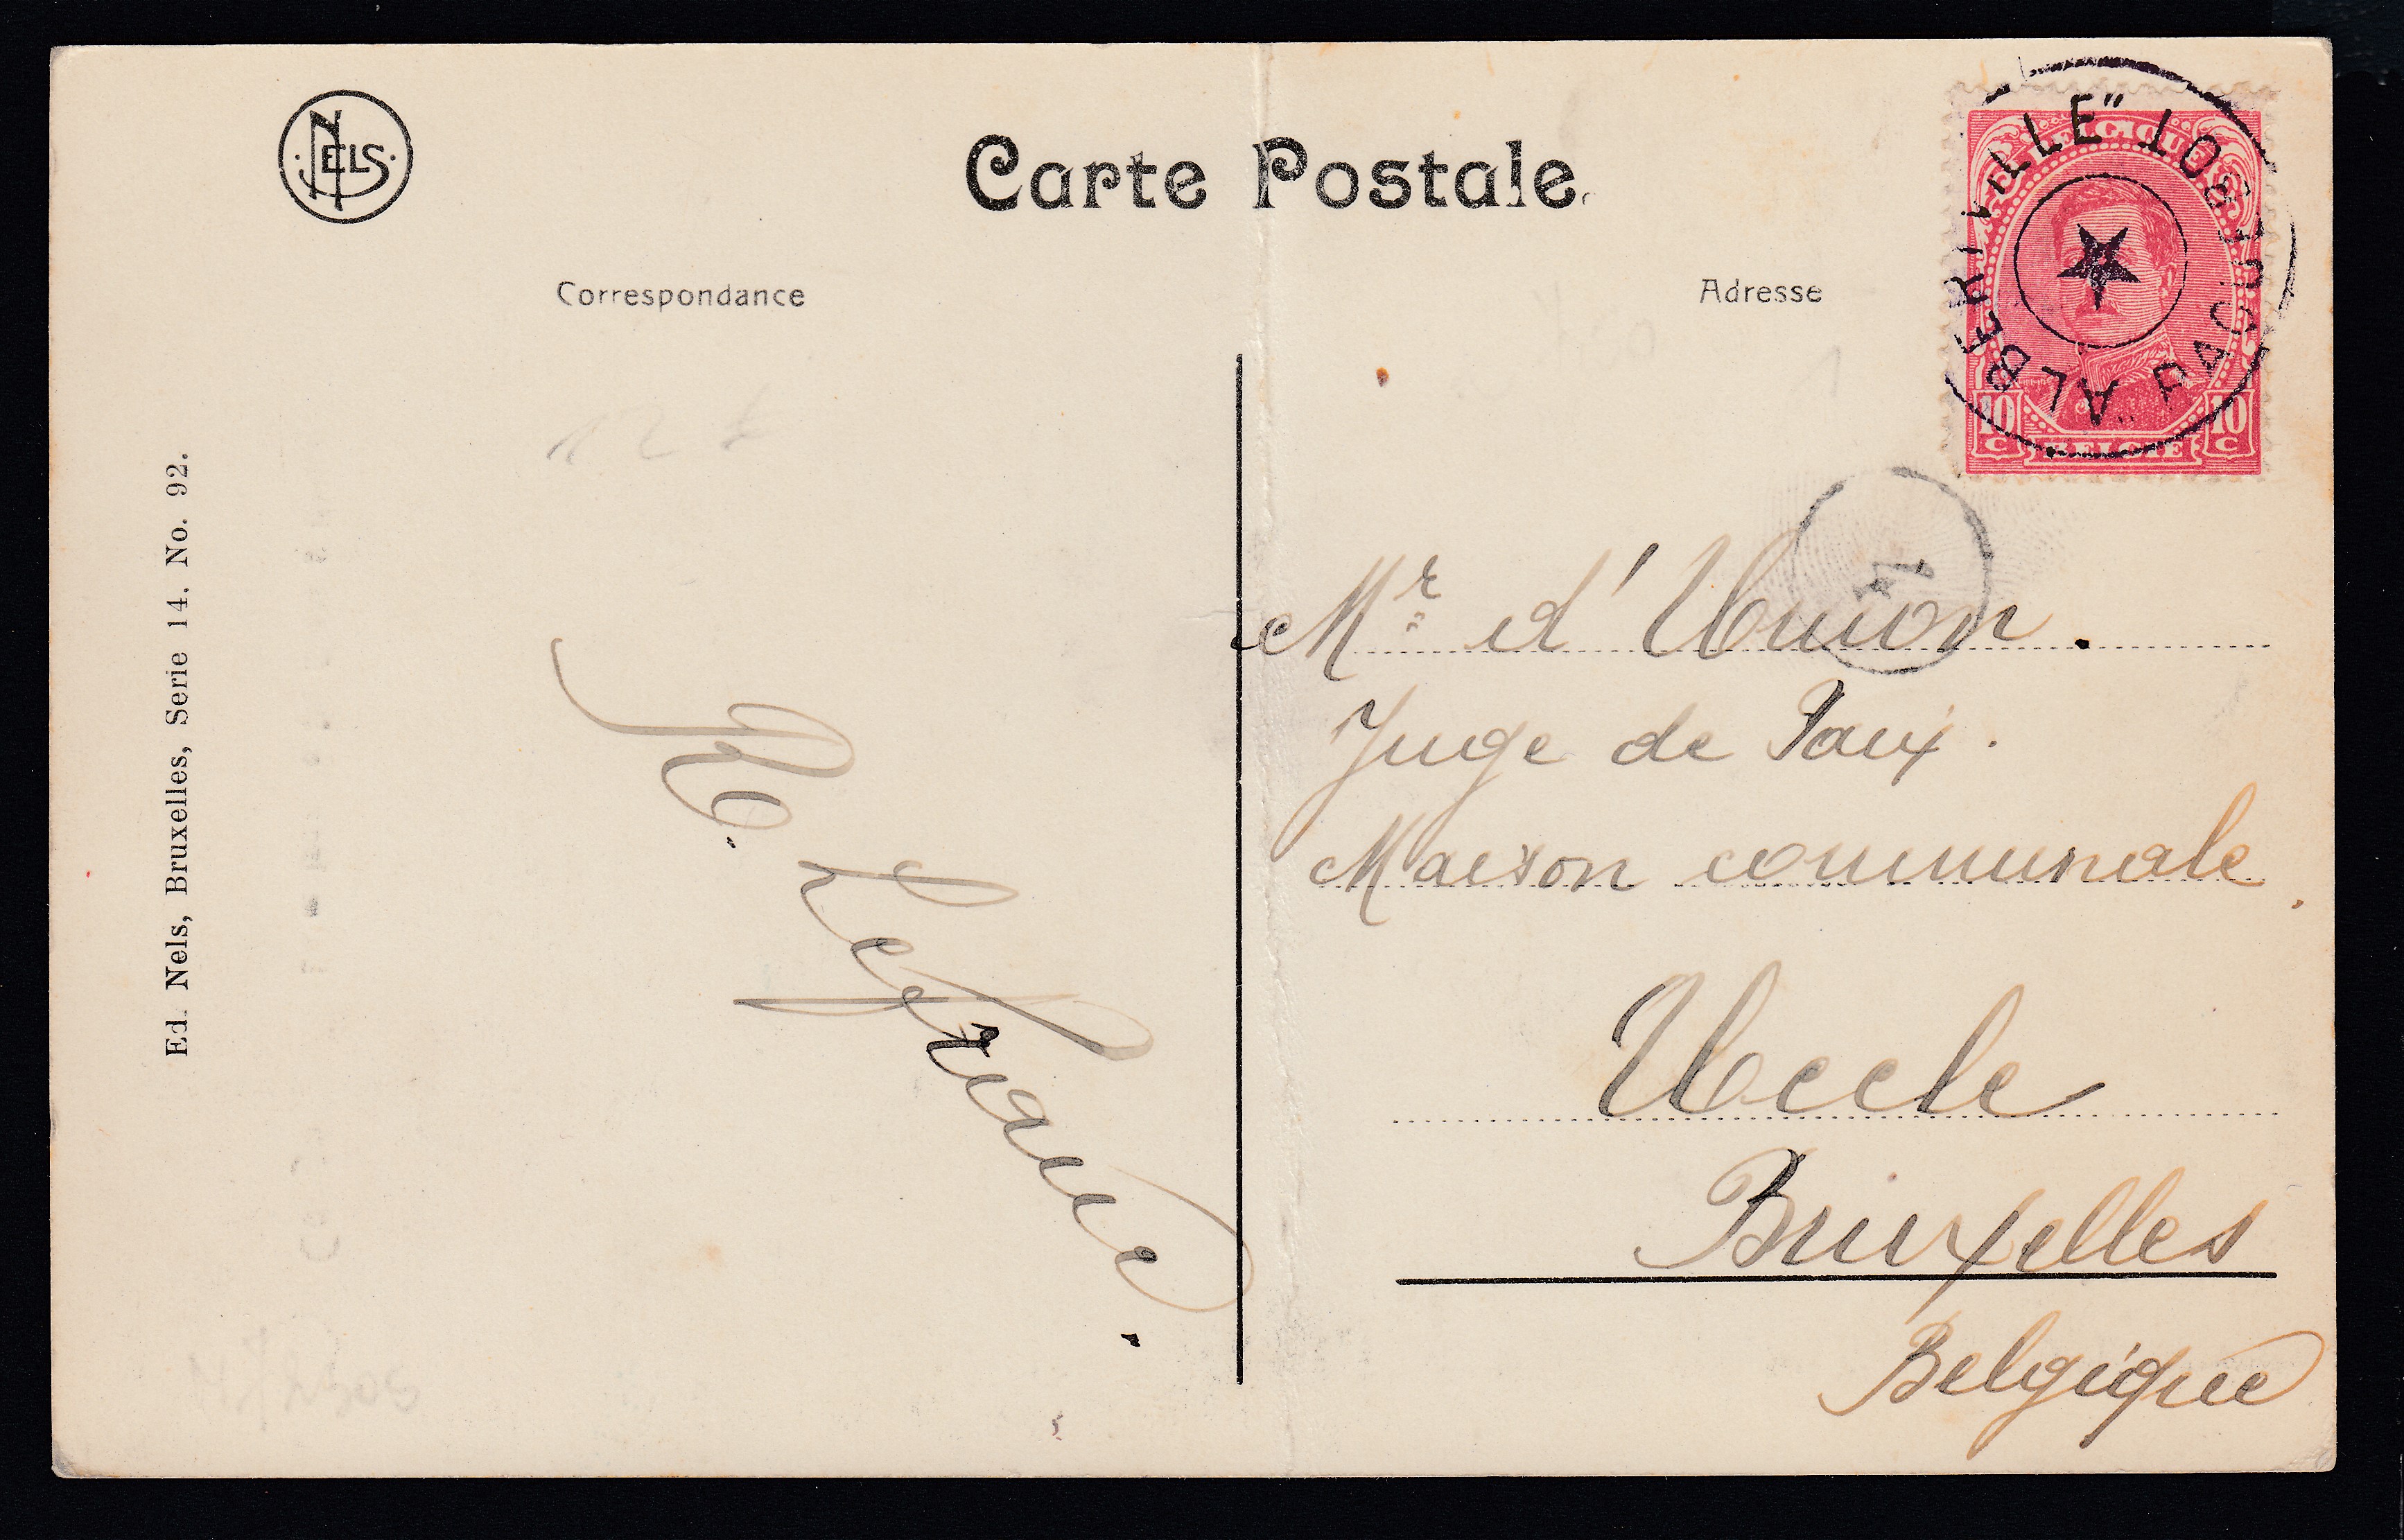 NELS
Carte Postale.
Correspondance
Adresse
BELGIQUE
10 C
10 C
BELGIË
PAQUEBOT "ALBERTVILLE"
Ed. Nels, Bruxelles, Serie 14. No. 92.
Mr. d'Union.
Juge de Paix.
Maison communale.
Uccle
Bruxelles
Belgique
R. Lefranc.